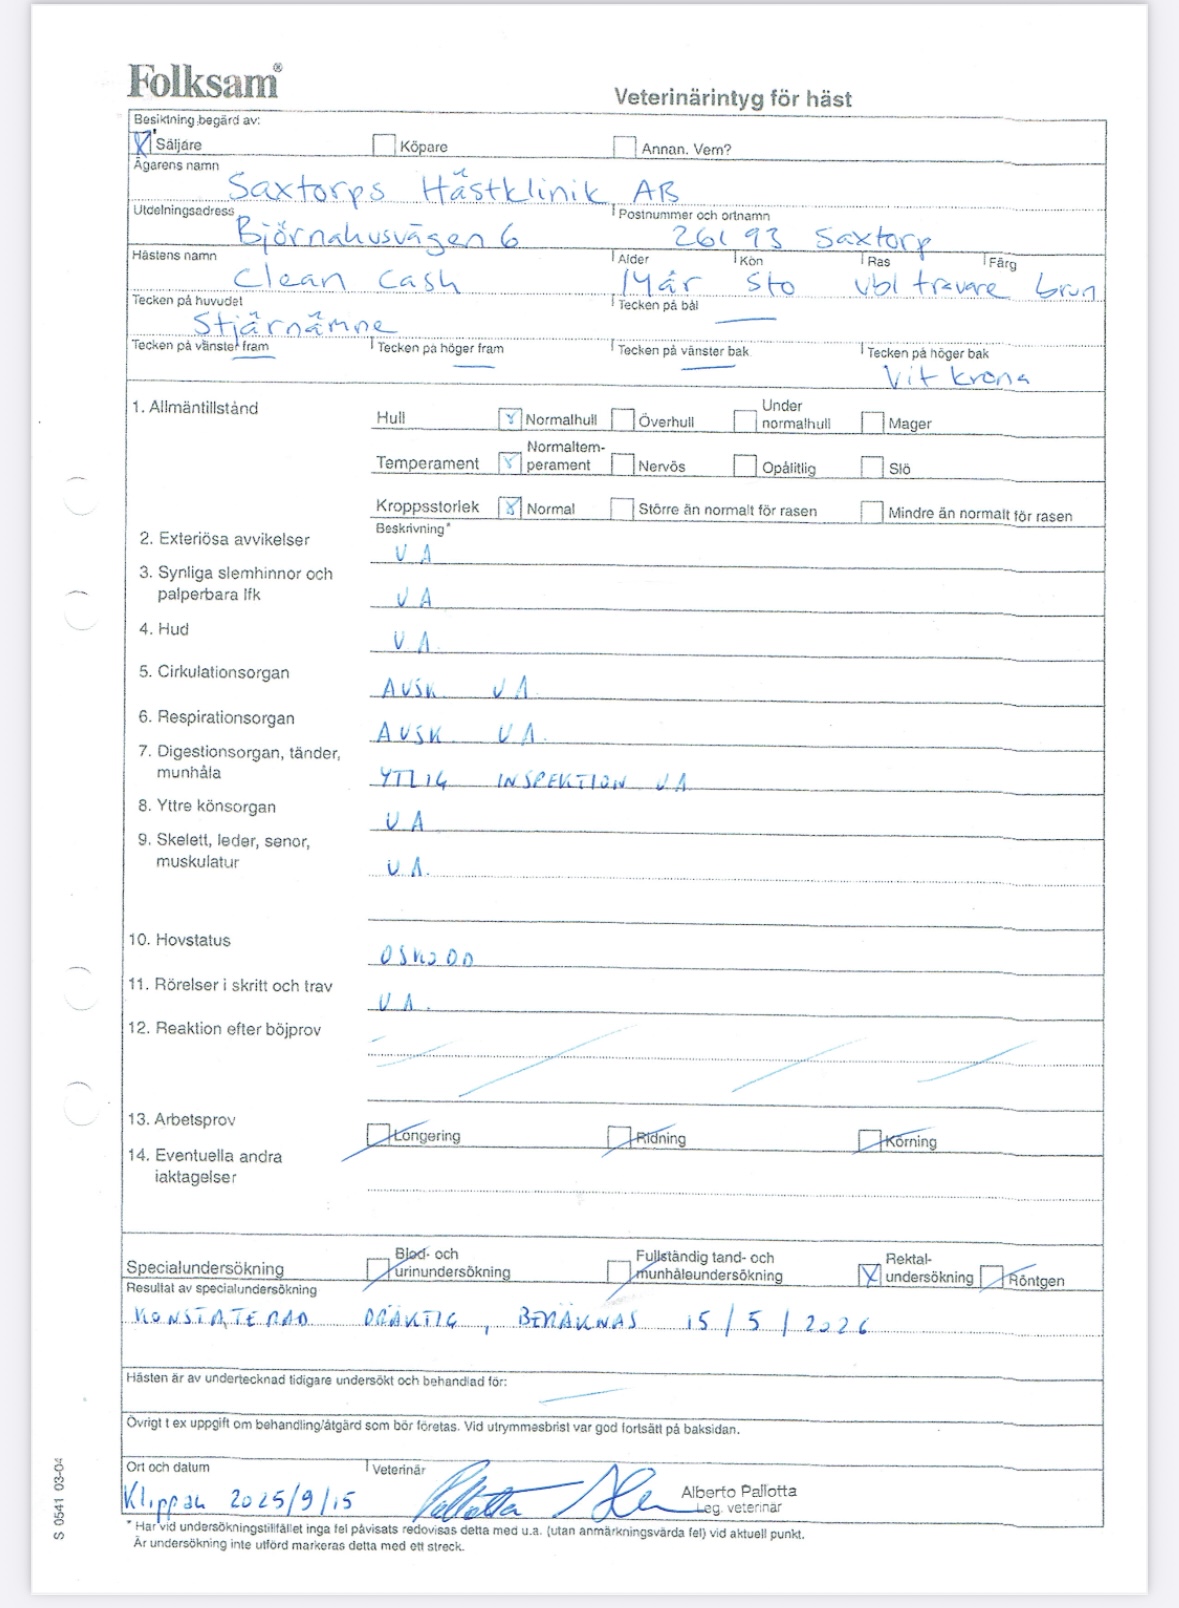 Folksam®
Veterinärintyg för häst
Besiktning begärd av:
Säljare Köpare Annan. Vem?
Ägarens namn
Saxtorps Hästklinik AB
Utdelningsadress Postnummer och ortnamn
Björnahusvägen 6 261 93 Saxtorp
Hästens namn Ålder Kön Ras Färg
Clean Cash 14år Sto vbl travare brun
Tecken på huvudet Tecken på bål
Stjärnämne
Tecken på vänster fram Tecken på höger fram Tecken på vänster bak Tecken på höger bak
Vit krona
1. Allmäntillstånd
Hull Normalhull Överhull Under normalhull Mager
Temperament Normaltem-
perament Nervös Opålitlig Slö
Kroppsstorlek Normal Större än normalt för rasen Mindre än normalt för rasen
Beskrivning*
2. Exteriösa avvikelser U A
3. Synliga slemhinnor och
palperbara lfk U A
4. Hud U A.
5. Cirkulationsorgan AUSK U A.
6. Respirationsorgan AUSK U A.
7. Digestionsorgan, tänder,
munhåla YTLIG INSPEKTION U A
8. Yttre könsorgan U A
9. Skelett, leder, senor,
muskulatur U A.
10. Hovstatus OSKODD
11. Rörelser i skritt och trav U A.
12. Reaktion efter böjprov
13. Arbetsprov Longering Ridning Körning
14. Eventuella andra
iaktagelser
Specialundersökning Blod- och
urinundersökning Fullständig tand- och
munhåleundersökning Rektal-
undersökning Röntgen
Resultat av specialundersökning
KONSTATERAD DRÄKTIG, BERÄKNAS 15/5/2026
Hästen är av undertecknad tidigare undersökt och behandlad för:
Övrigt t ex uppgift om behandling/åtgärd som bör företas. Vid utrymmesbrist var god fortsätt på baksidan.
Ort och datum Veterinär
Klippan 2025/9/15 Pallotta Alberto Pallotta
Leg. veterinär
* Har vid undersökningstillfället inga fel påvisats redovisas detta med u.a. (utan anmärkningsvärda fel) vid aktuell punkt.
Är undersökning inte utförd markeras detta med ett streck.
S 0541 03-04